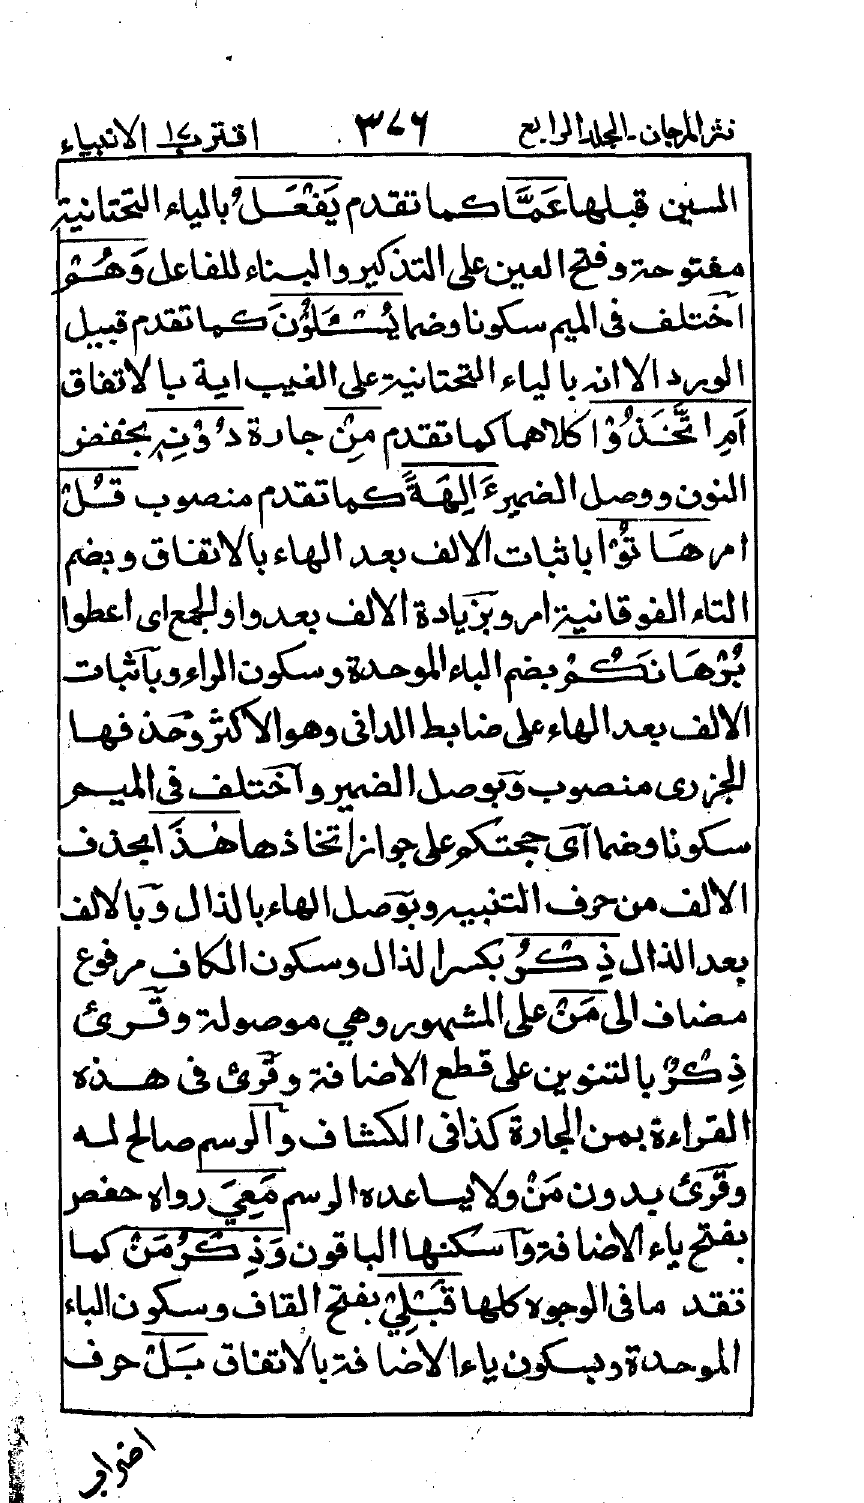 نثر المرجان - المجلد الرابع ٣٧٦ اقترب ١٧ الانبياء
السين قبلها عَمَّا كما تقدم يَفْعَلُ بالياء التحتانية
مفتوحة وفتح العين على التذكير والبناء للفاعل وَهُمْ
اختلف فى الميم سكونا وضما يُسْئَلُوْنَ كما تقدم قبيل
الورد الا انه بالياء التحتانية على الغيب اية بالاتفاق
اَمِ اتَّخَذُوْا كلاهما كما تقدم مِنْ جارة دُوْنِهٖ بخفض
النون ووصل الضمير ءَالِهَةً كما تقدم منصوب قُلْ
امر هَاتُوْا باثبات الالف بعد الهاء بالاتفاق وبضم
التاء الفوقانية امر وبزيادة الالف بعد واو الجمع اى اعطوا
بُرْهَانَكُمْ بضم الباء الموحدة وسكون الراء وباثبات
الالف بعد الهاء على ضابط الدانى وهو الاكثر وحذفها
الجزرى منصوب وبوصل الضمير واختلف فى الميم
سكونا وضما اى حجتكم على جواز اتخاذها هٰذَا بحذف
الالف من حرف التنبيه وبوصل الهاء بالذال وبالالف
بعد الذال ذِكْرُ بكسر الذال وسكون الكاف مرفوع
مضاف الى مَنْ على المشهور وهي موصولة وقرئ
ذِكْرٌ بالتنوين على قطع الاضافة وقرئ فى هذه
القراءة بمن الجارة كذا فى الكشاف والرسم صالح له
وقرئ بدون مَنْ ولا يساعده الرسم مَعِيَ رواه حفص
بفتح ياء الاضافة واسكنها الباقون وَذِكْرُ مَنْ كما
تقدم فى الوجوه كلها قَبْلِيْ بفتح القاف وسكون الباء
الموحدة وبسكون ياء الاضافة بالاتفاق بَلْ حرف
اضراب